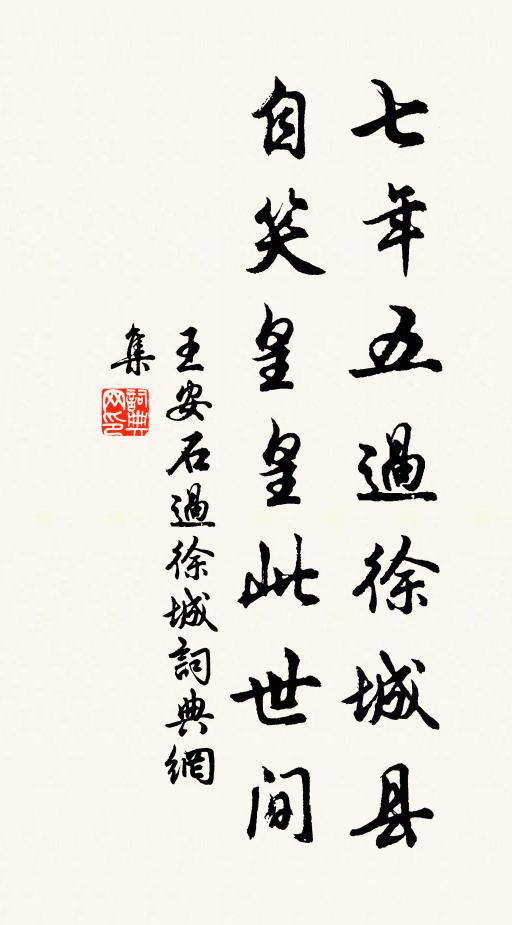 七年五過徐城县
自笑皇皇此世间
王安石過徐城詞典網
集
詞典網印